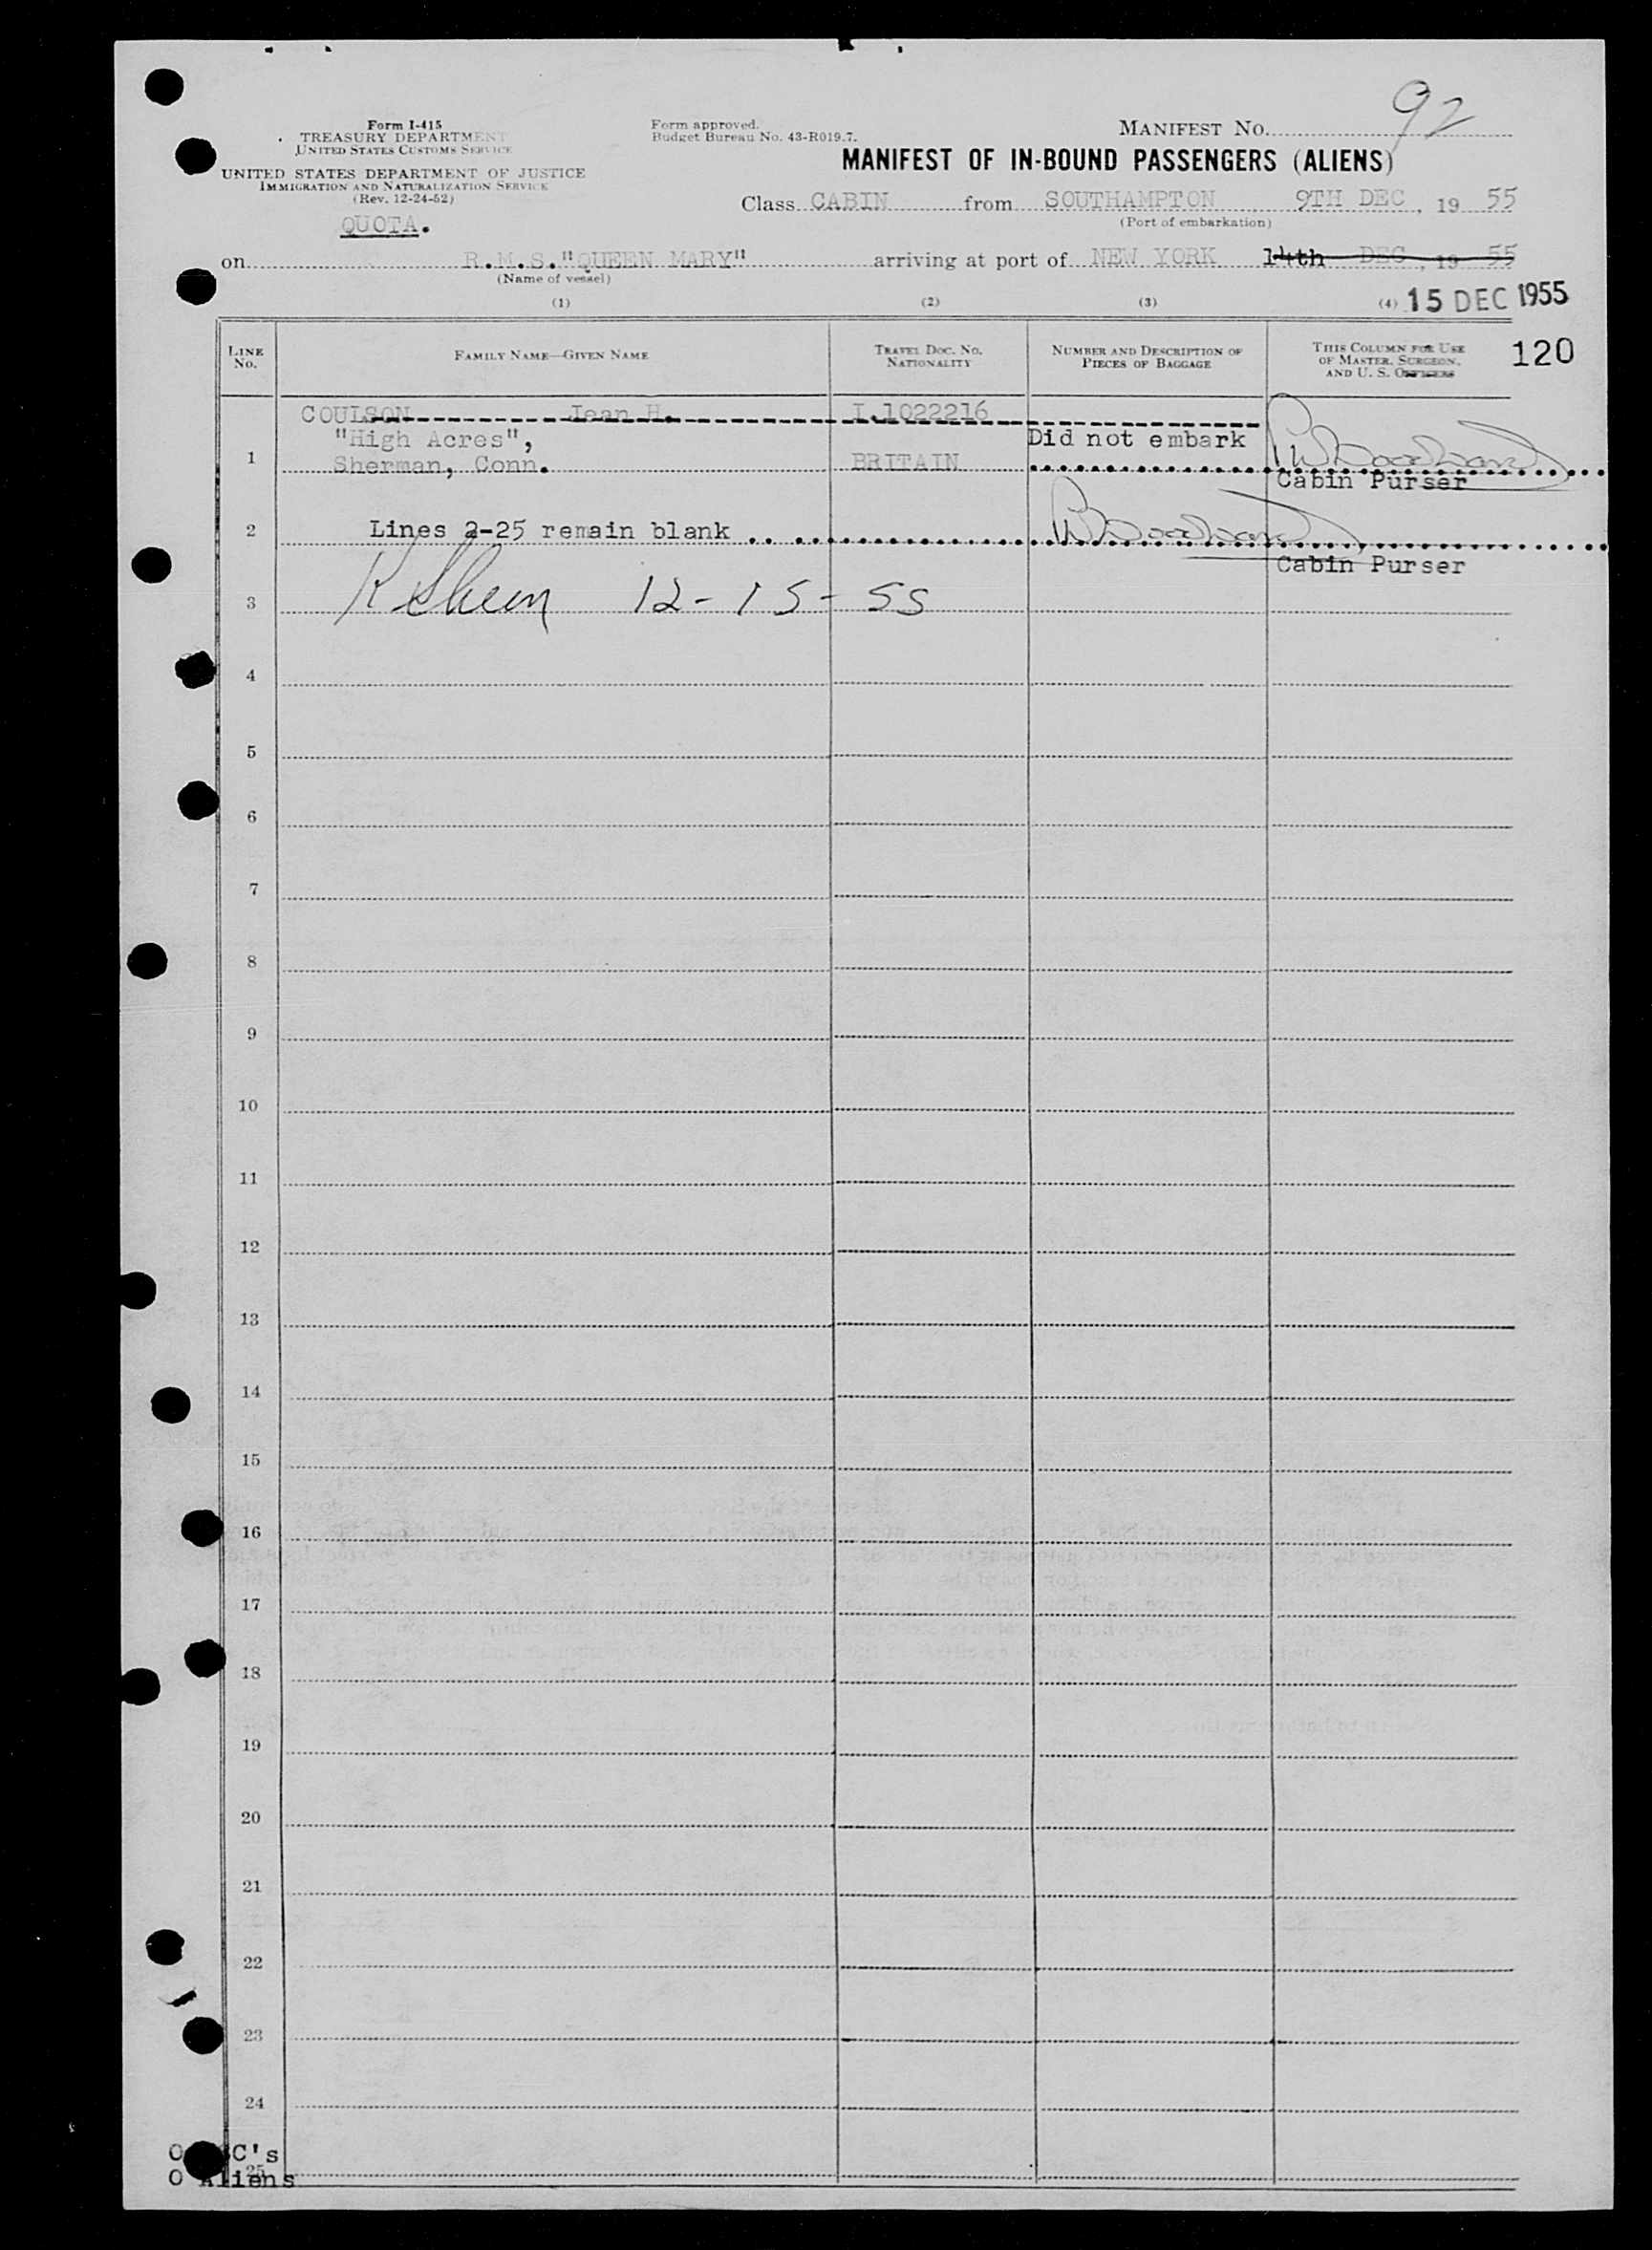 92
Form I-415
TREASURY DEPARTMENT
UNITED STATES CUSTOMS SERVICE
UNITED STATES DEPARTMENT OF JUSTICE
IMMIGRATION AND NATURALIZATION SERVICE
(Rev. 12-24-52)
QUOTA.
Form approved.
Budget Bureau No. 43-R019.7.
MANIFEST No.
MANIFEST OF IN-BOUND PASSENGERS (ALIENS)
Class CABIN from SOUTHAMPTON 9TH DEC, 19 55
(Port of embarkation)
on R.M.S."QUEEN MARY" arriving at port of NEW YORK 14th DEC, 19 55
(Name of vessel)
(1) (2) (3) (4) 15 DEC 1955
LINE No. FAMILY NAME—GIVEN NAME TRAVEL DOC. NO. NATIONALITY NUMBER AND DESCRIPTION OF PIECES OF BAGGAGE THIS COLUMN FOR USE OF MASTER, SURGEON, AND U. S. OFFICERS 120
COULSON Jean H. I.1022216
"High Acres", Did not embark
1 Sherman, Conn. BRITAIN
Cabin Purser
2 Lines 2-25 remain blank
Cabin Purser
3 12-15-55
4
5
6
7
8
9
10
11
12
13
14
15
16
17
18
19
20
21
22
23
24
0 C's
25
0 Aliens